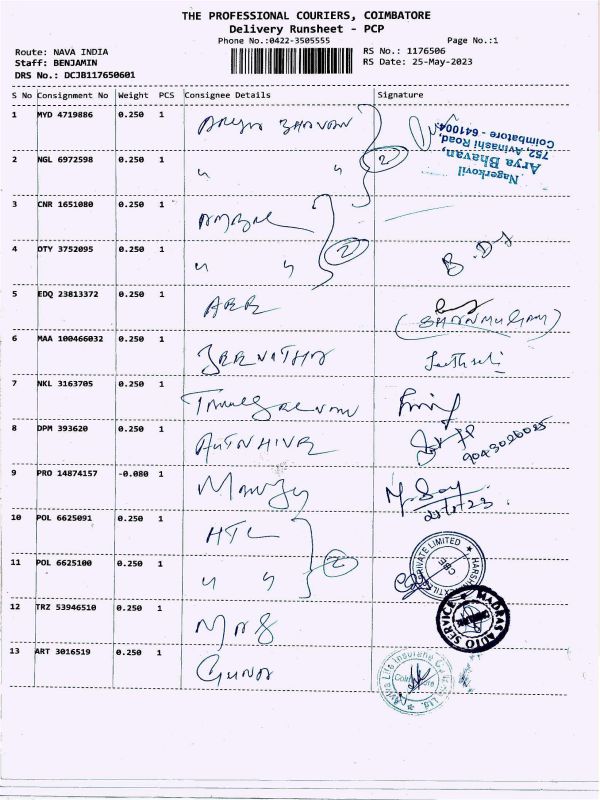 THE PROFESSIONAL COURIERS, COIMBATORE
Delivery Runsheet - PCP
Phone No.:0422-3505555 Page No.:1
Route: NAVA INDIA RS No.: 1176506
Staff: BENJAMIN RS Date: 25-May-2023
DRS No.: DCJB117650601
S No Consignment No Weight PCS Consignee Details Signature
1 MYD 4719886 0.250 1 Arya Bhavan
Nagerkovil
Arya Bhavan,
752, Avinashi Road,
Coimbatore - 641004.
2 NGL 6972598 0.250 1 " " 2
3 CNR 1651080 0.250 1
4 OTY 3752095 0.250 1 " " 2
5 EDQ 23813372 0.250 1 (SHANMUGAM)
6 MAA 100466032 0.250 1
7 NKL 3163705 0.250 1
8 DPM 393620 0.250 1 9043026025
9 PRO 14874157 -0.080 1 Manju
10 POL 6625091 0.250 1 HTL
11 POL 6625100 0.250 1 " " 2
PRIVATE LIMITED
CBE
12 TRZ 53946510 0.250 1
MADRAS AUTO SERVICE
13 ART 3016519 0.250 1 Guna
Coimbatore